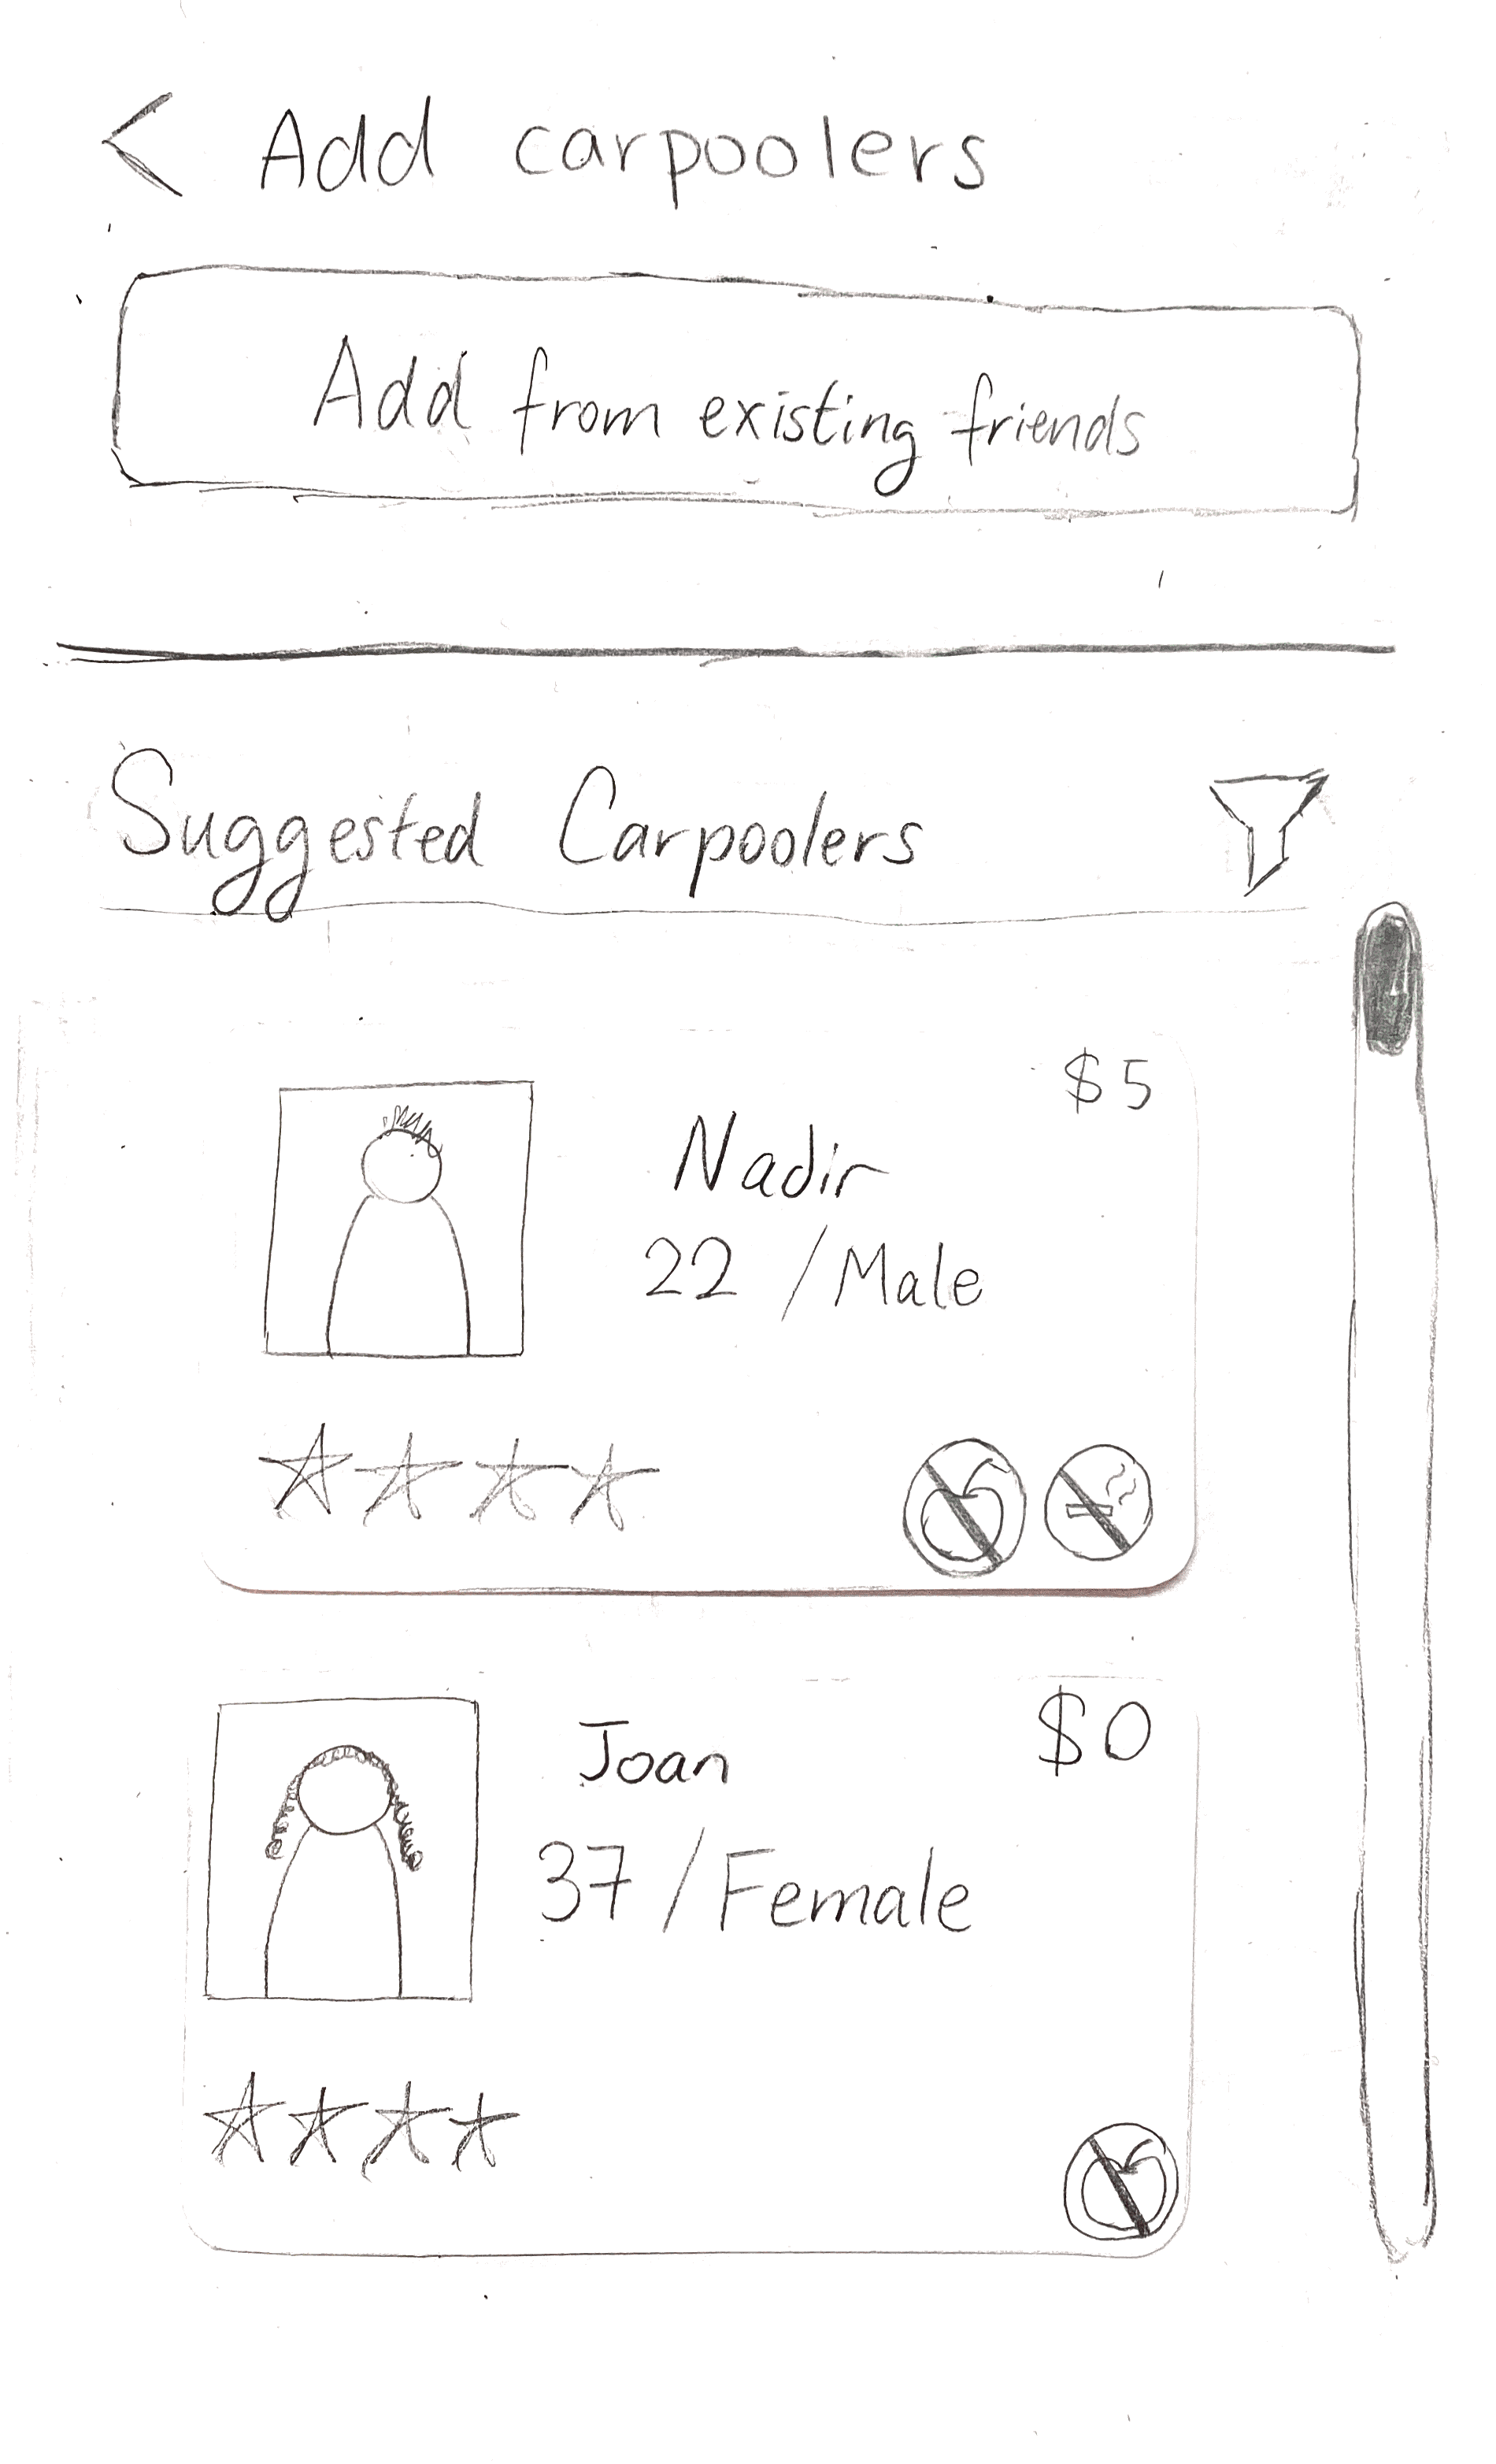 < Add carpoolers
Add from existing friends
Suggested Carpoolers
$5
Nadir
22 / Male
Joan
$0
37 / Female